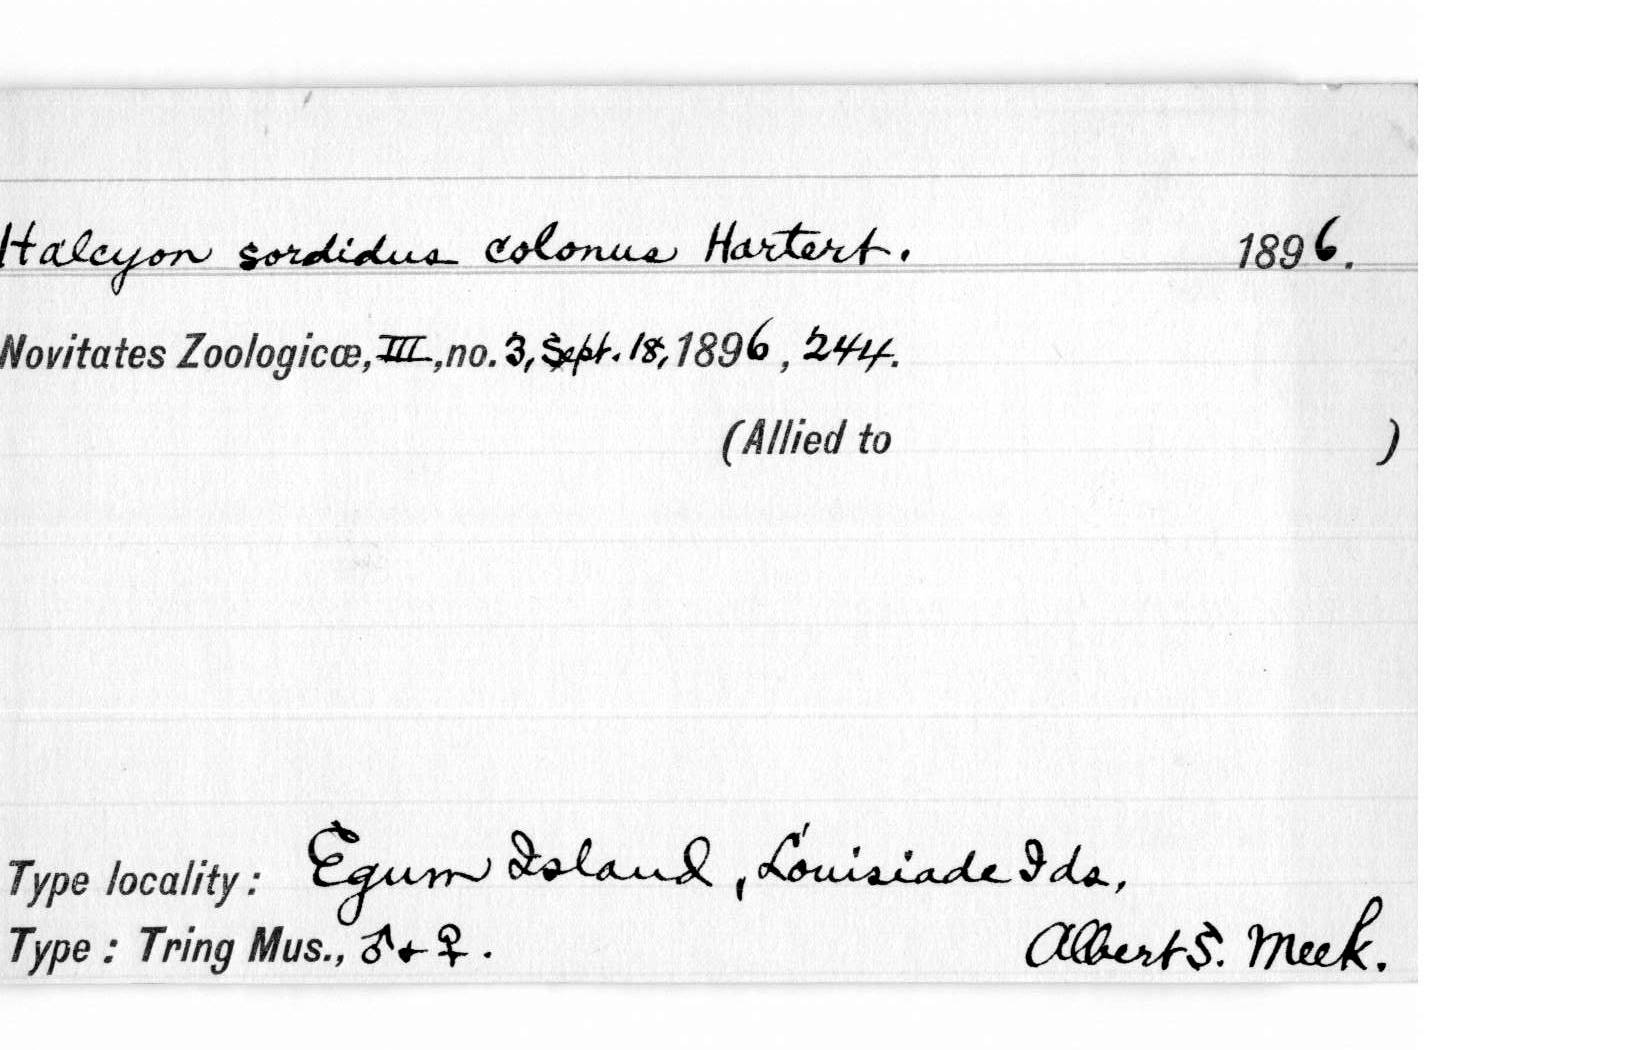 Halcyon sordidus colonus Hartert. 1896.
Novitates Zoologicæ, III, no. 3, Sept. 18, 1896, 244.
(Allied to )
Type locality: Egum Island, Louisiade Ids,
Type: Tring Mus., ♂ + ♀. Albert S. Meek.